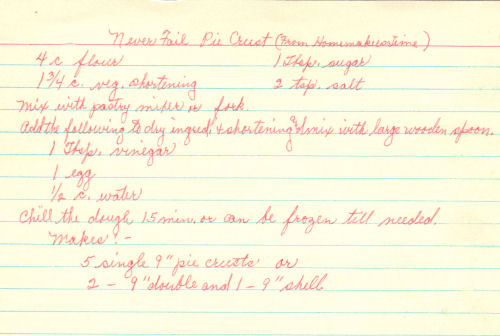 Never Fail Pie Crust (From Homemakers time)
4 c flour 1 Tbsp. sugar
1 3/4 c. veg. shortening 2 tsp. salt
Mix with pastry mixer or fork.
Add the following to dry ingred. & shortening & mix with large wooden spoon.
1 Tbsp. vinegar
1 egg
1/2 c. water
Chill the dough 15 min. or can be frozen till needed.
Makes: -
5 single 9" pie crusts or
2 - 9" double and 1 - 9" shell